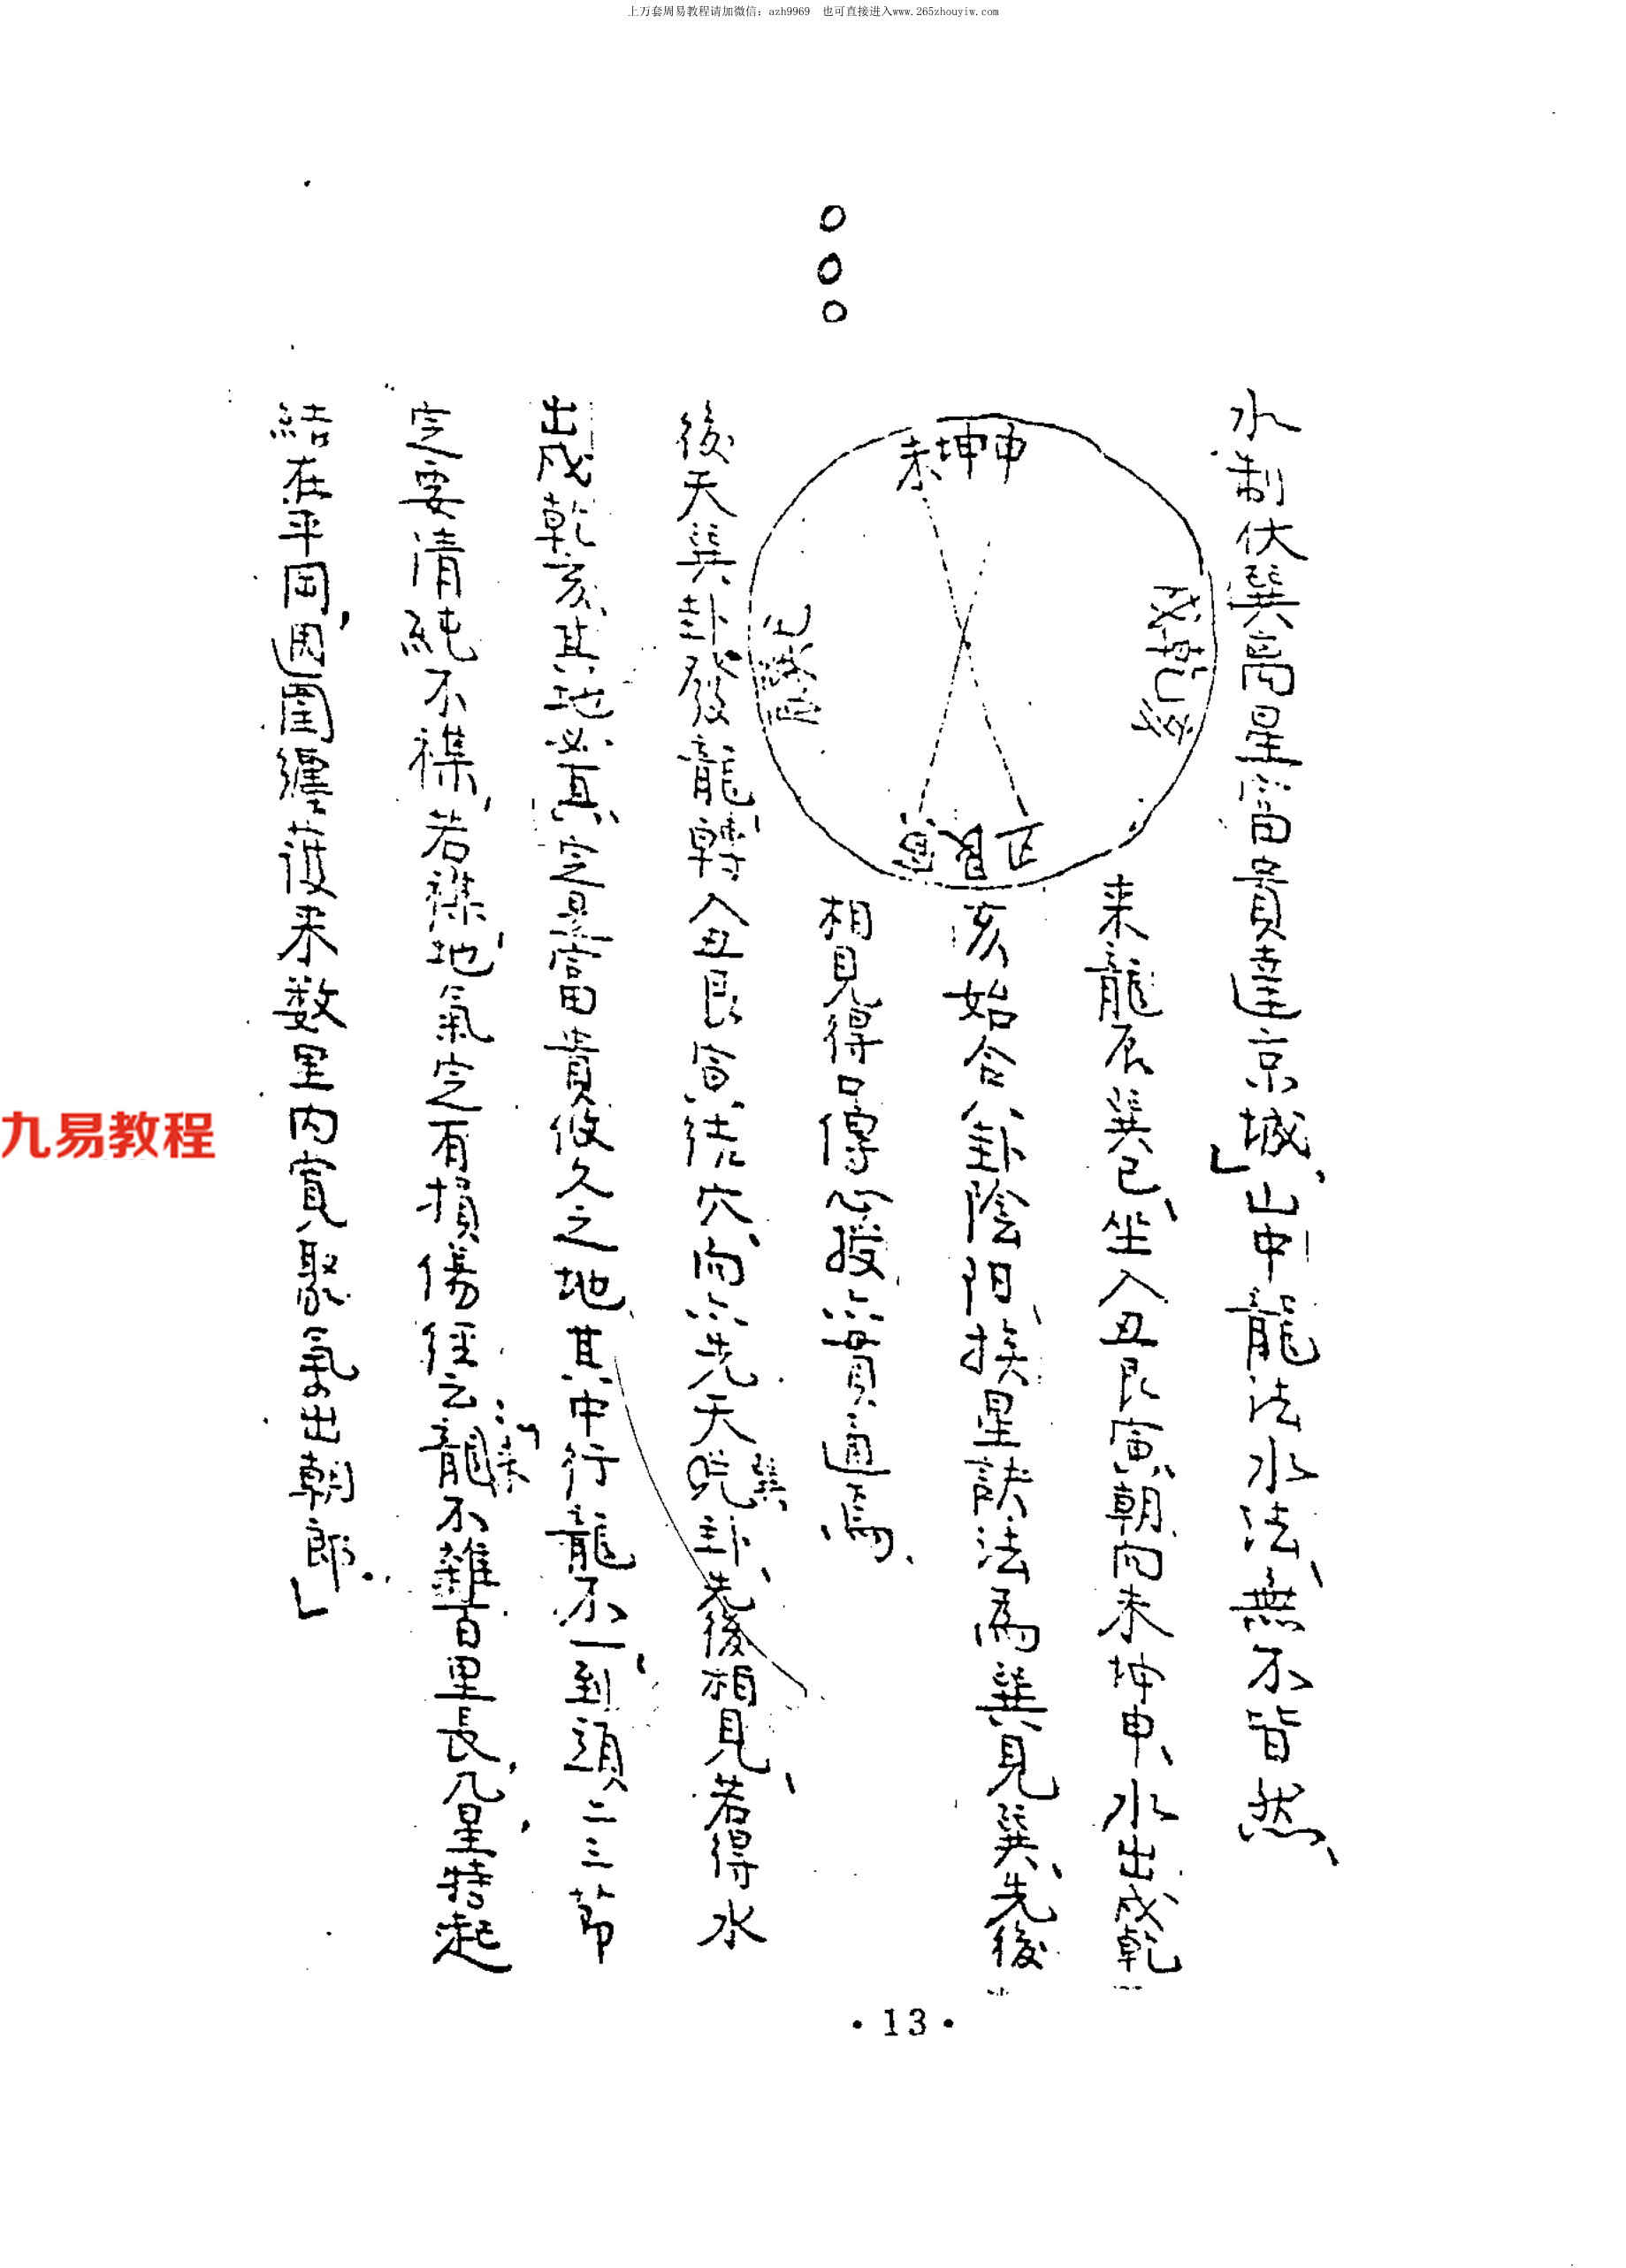 上万套周易教程请加微信：azh9969 也可直接进入www.265zhouyiw.com
水制伏巽高星富貴達京城」、山中龍法水法、無不皆然、
未坤申
来龍辰巽巳、坐入丑艮寅、朝向未坤申、水出戌乾
亥始合八卦陰阳、挨星訣法為巽見巽、先後
相見得口傳心授、亦貫通焉、
後天巽卦發龍、轉入丑艮寅、结穴、向亦先天巽卦、先後相見、若得水
出戌乾亥、其地必真、定是富貴攸久之地、其中行龍不一、到頭二三節
定要清純不襍、若襍、地氣定有損傷、經云：「龍来不離百里長，凡星特起，
結在平岡，週圍纏護来数里内寬聚氣出朝郎。」
九易教程
·13·